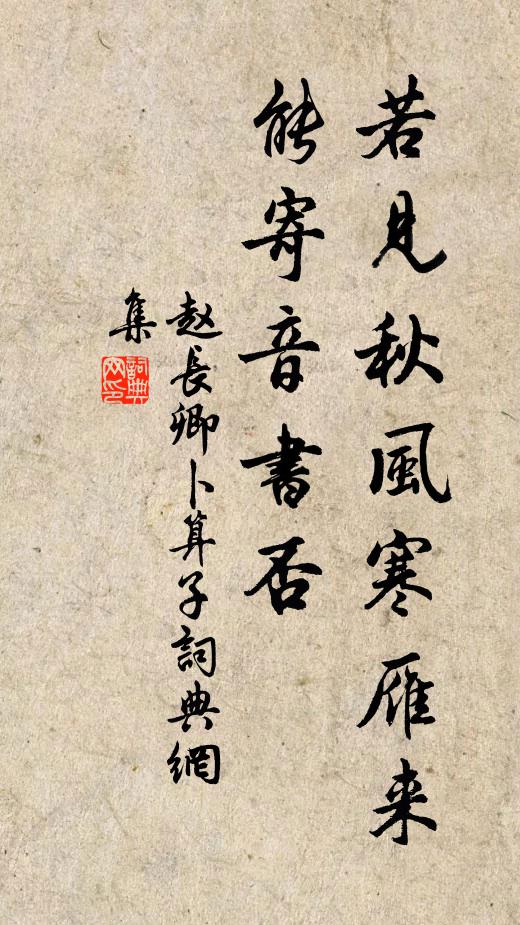 若見秋風寒雁来
能寄音書否
赵長卿卜算子詞典網
集
詞典
网印